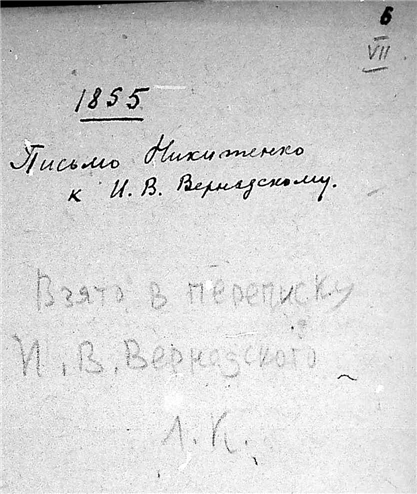 6
VII
1855
Письмо Никитенко
к И. В. Вернадскому.
Взято в переписку
И. В. Вернадского
Л. К.